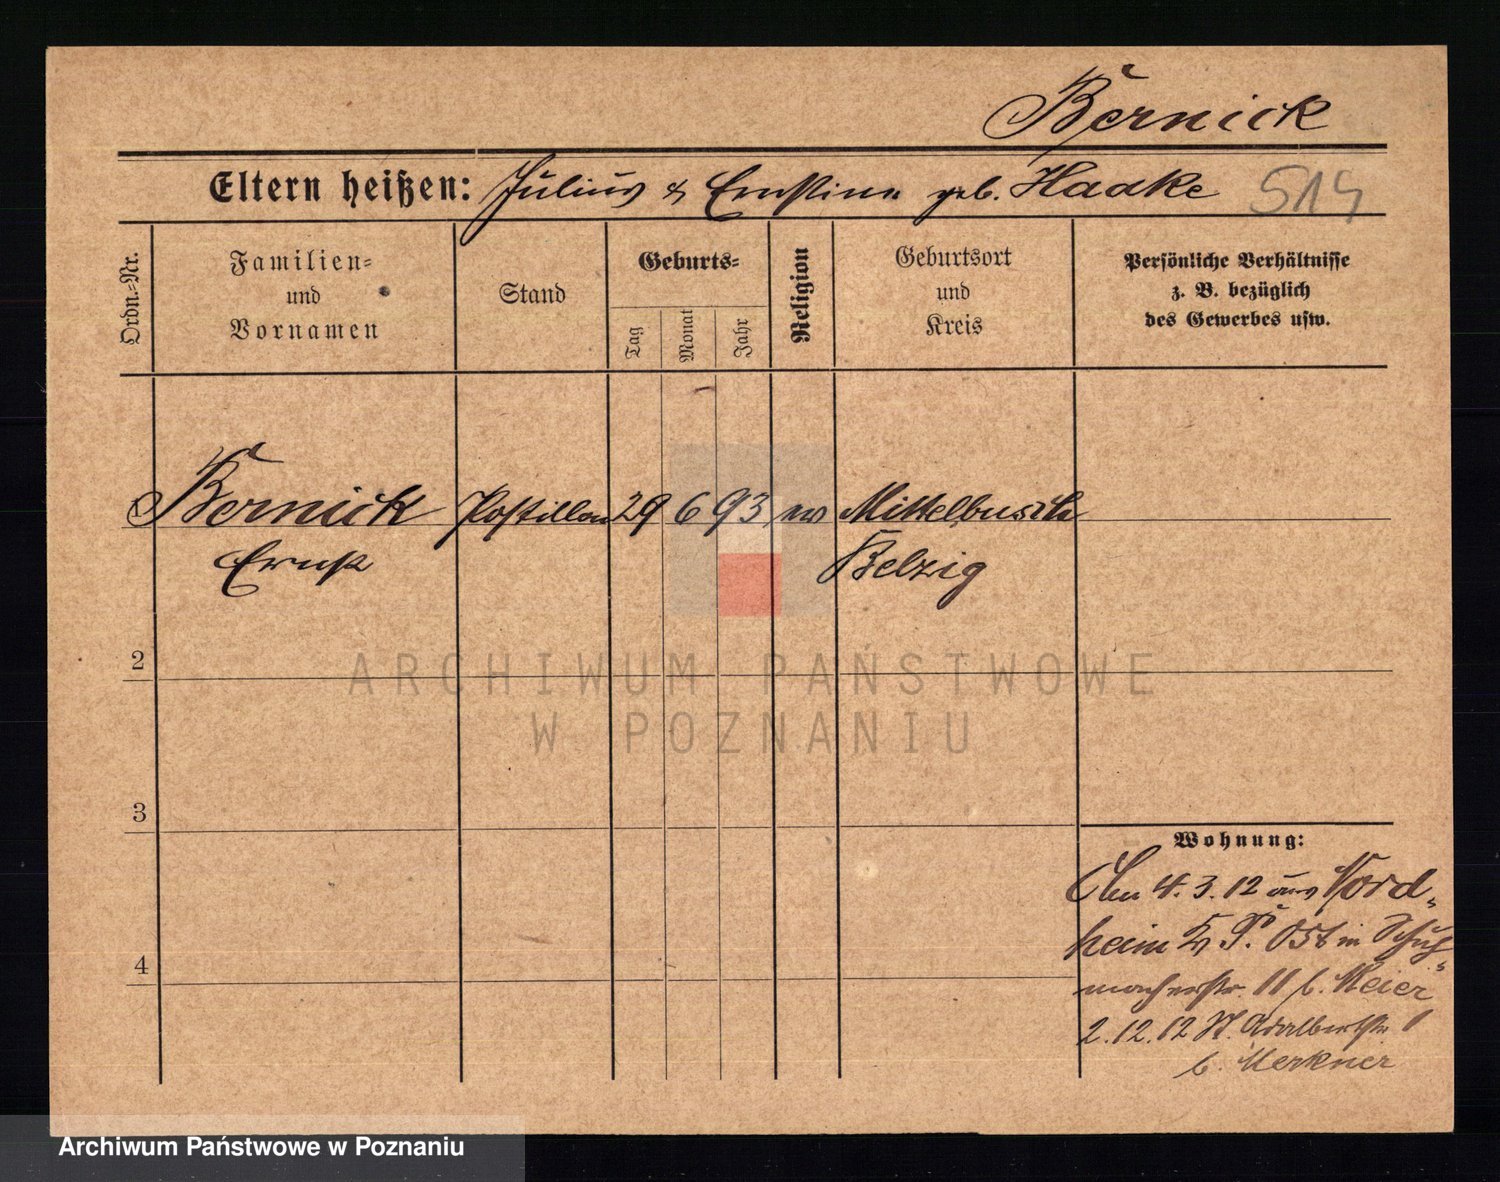 Bernick
Eltern heißen: Julius & Ernstine geb. Haake 514
Ordn.-Nr.
Familien-
und
Vornamen
Stand
Geburts-
Tag
Monat
Jahr
Religion
Geburtsort
und
Kreis
Persönliche Verhältnisse
z. B. bezüglich
des Gewerbes usw.
1 Bernick Postillon 29 6 93 ev Mittelbusch
Ernst Belzig
2
3
4
Wohnung:
4.3.12 aus Nord-
heim Kr. P. Ost in Schuh-
macherstr. 11 b. Meier
2.12.12 St. Adalbertstr 1
b. Merkner
ARCHIWUM PAŃSTWOWE
W POZNANIU
Archiwum Państwowe w Poznaniu